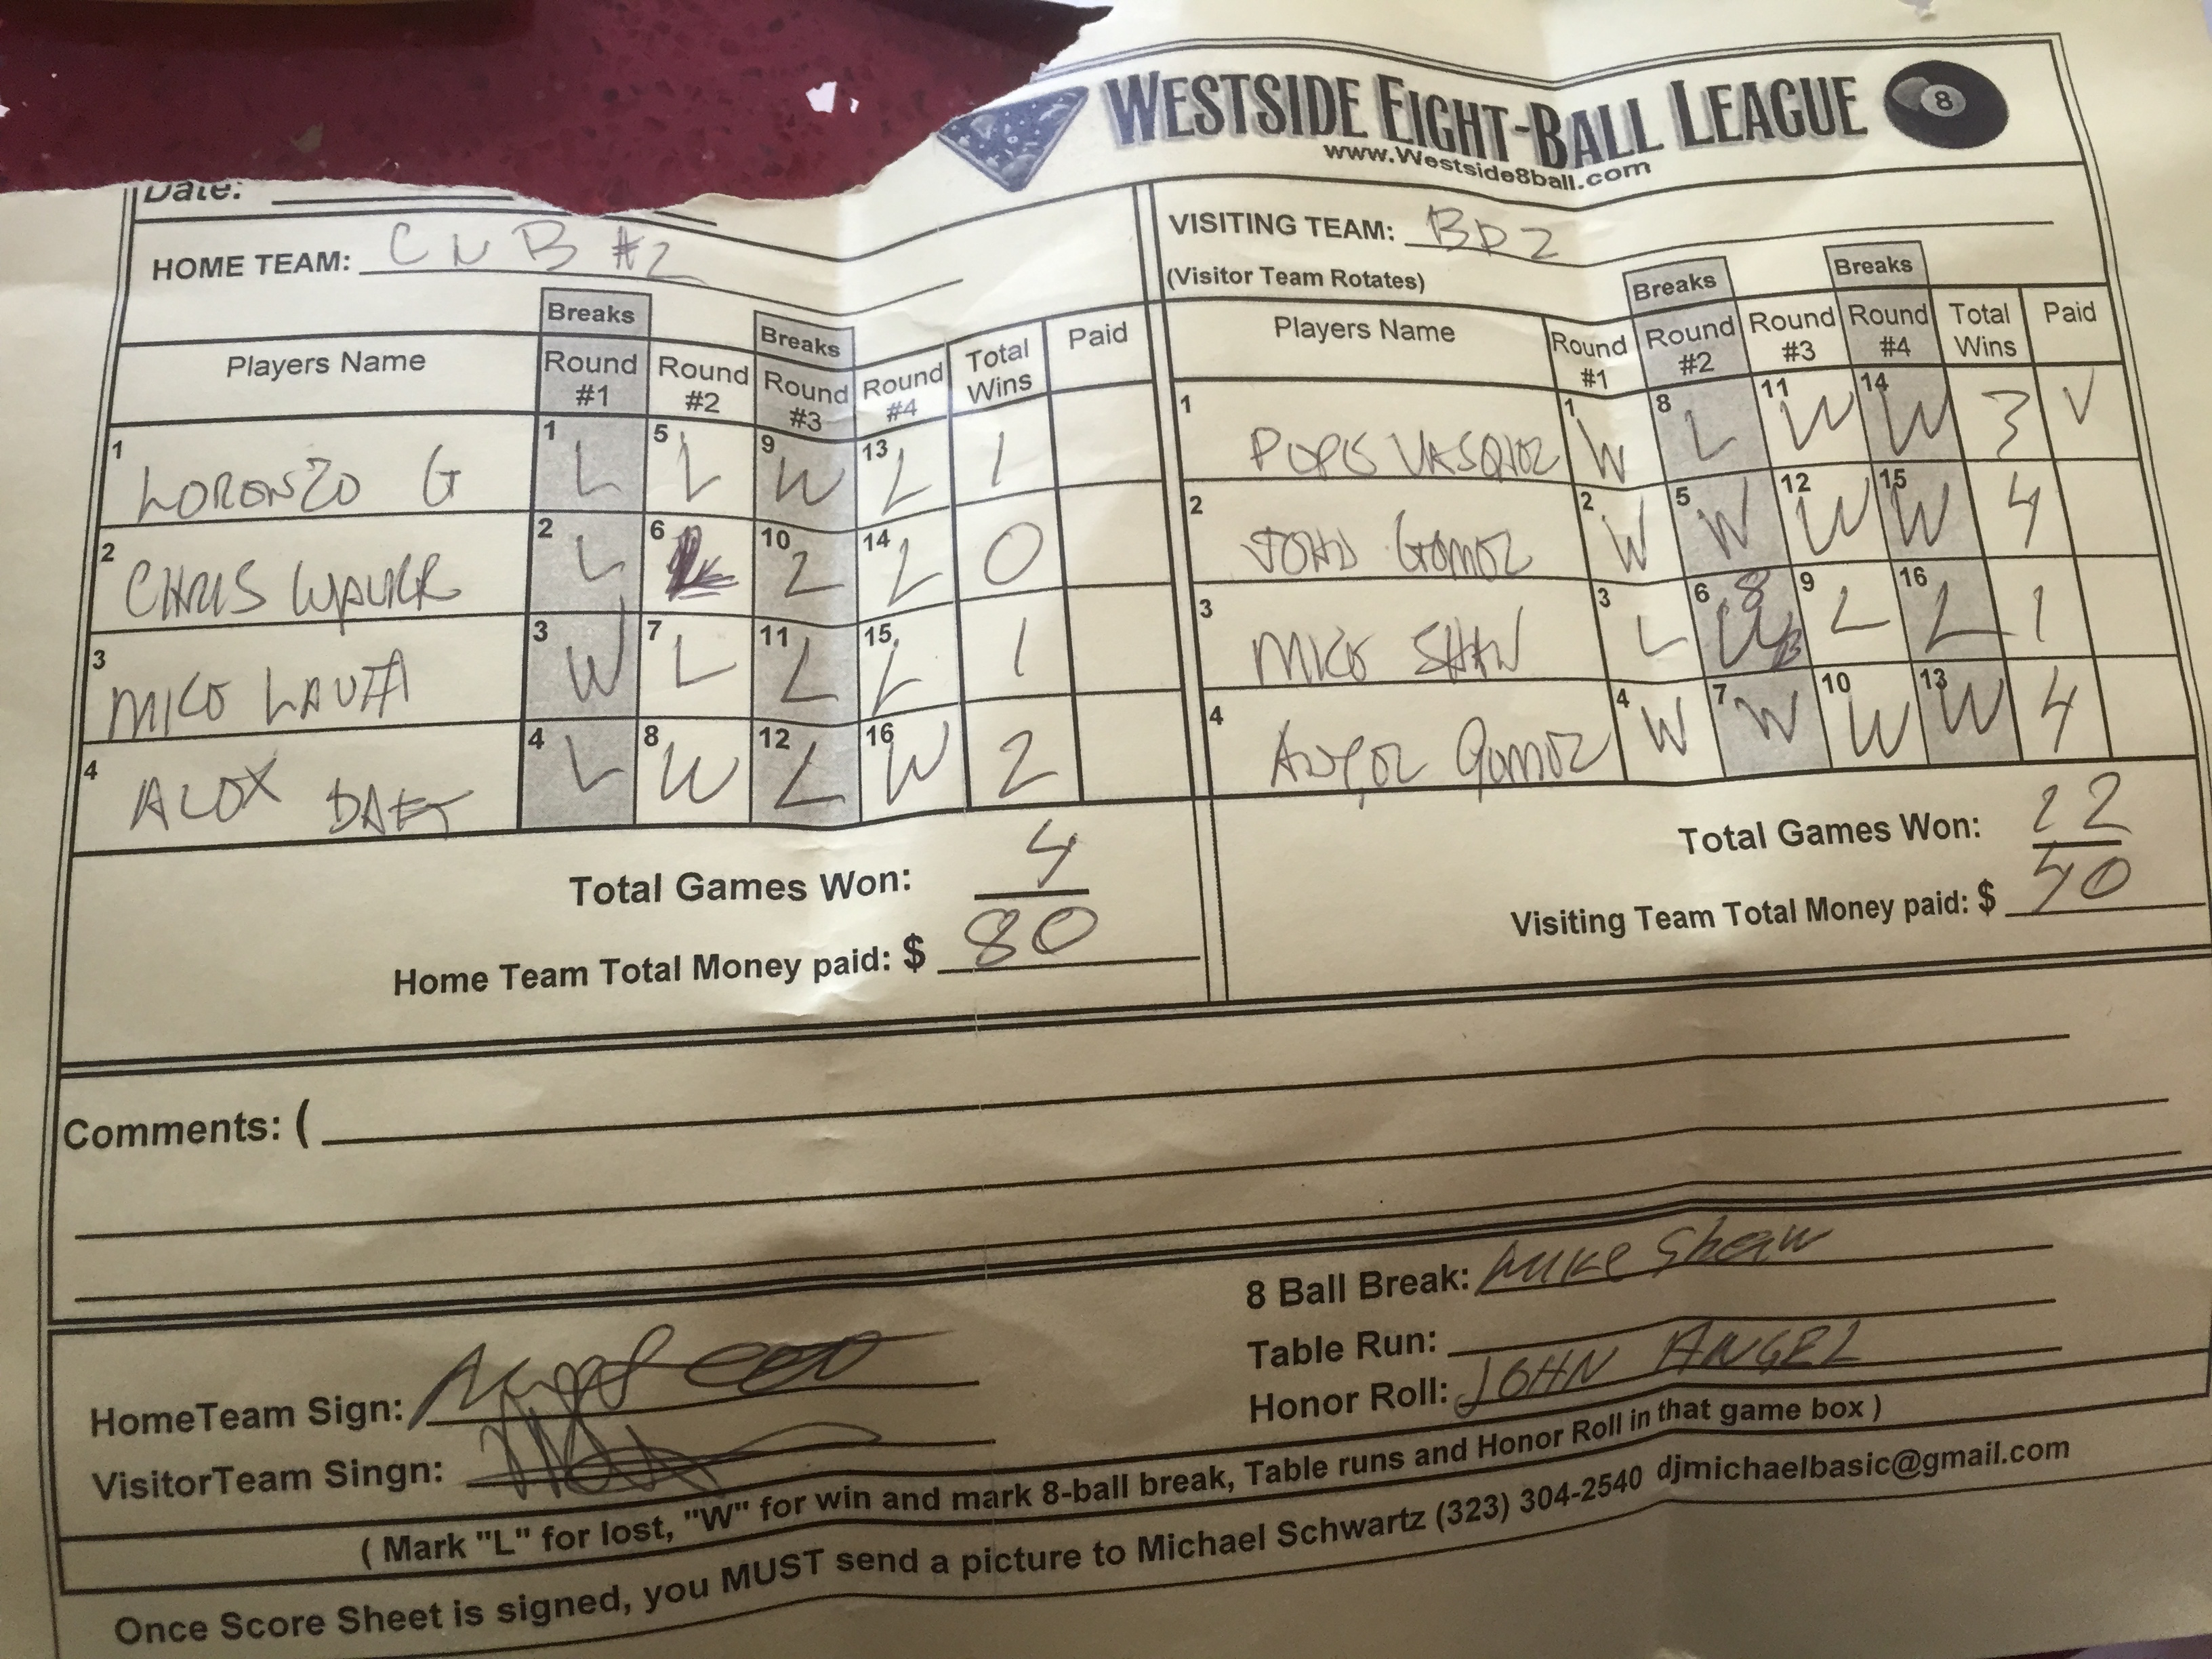 WESTSIDE EIGHT-BALL LEAGUE 8
www.Westside8ball.com
Date:
HOME TEAM: CNB #2
VISITING TEAM: BD2
(Visitor Team Rotates)
Breaks Breaks
Players Name Round #1 Round #2 Round #3 Round #4 Total Wins Paid
1 LORENZO G 1 L 5 L 9 W 13 L 1
2 CHRIS WALKER 2 L 6 L 10 L 14 L 0
3 MIKE 3 W 7 L 11 L 15 L 1
4 ALEX 4 L 8 W 12 L 16 W 2
Total Games Won: 4
Home Team Total Money paid: $ 80
Breaks Breaks
Players Name Round #1 Round #2 Round #3 Round #4 Total Wins Paid
1 VASQUEZ 1 W 8 L 11 W 14 W 3 ✓
2 JOHN GOMEZ 2 W 5 W 12 W 15 W 4
3 MIKE SHAW 3 L 6 W 8B 9 L 16 L 1
4 ANGEL GOMEZ 4 W 7 W 10 W 13 W 4
Total Games Won: 12
Visiting Team Total Money paid: $ 40
Comments: (
8 Ball Break: MIKE Shaw
Table Run:
Honor Roll: JOHN ANGEL
HomeTeam Sign:
VisitorTeam Singn:
( Mark "L" for lost, "W" for win and mark 8-ball break, Table runs and Honor Roll in that game box )
Once Score Sheet is signed, you MUST send a picture to Michael Schwartz (323) 304-2540 djmichaelbasic@gmail.com